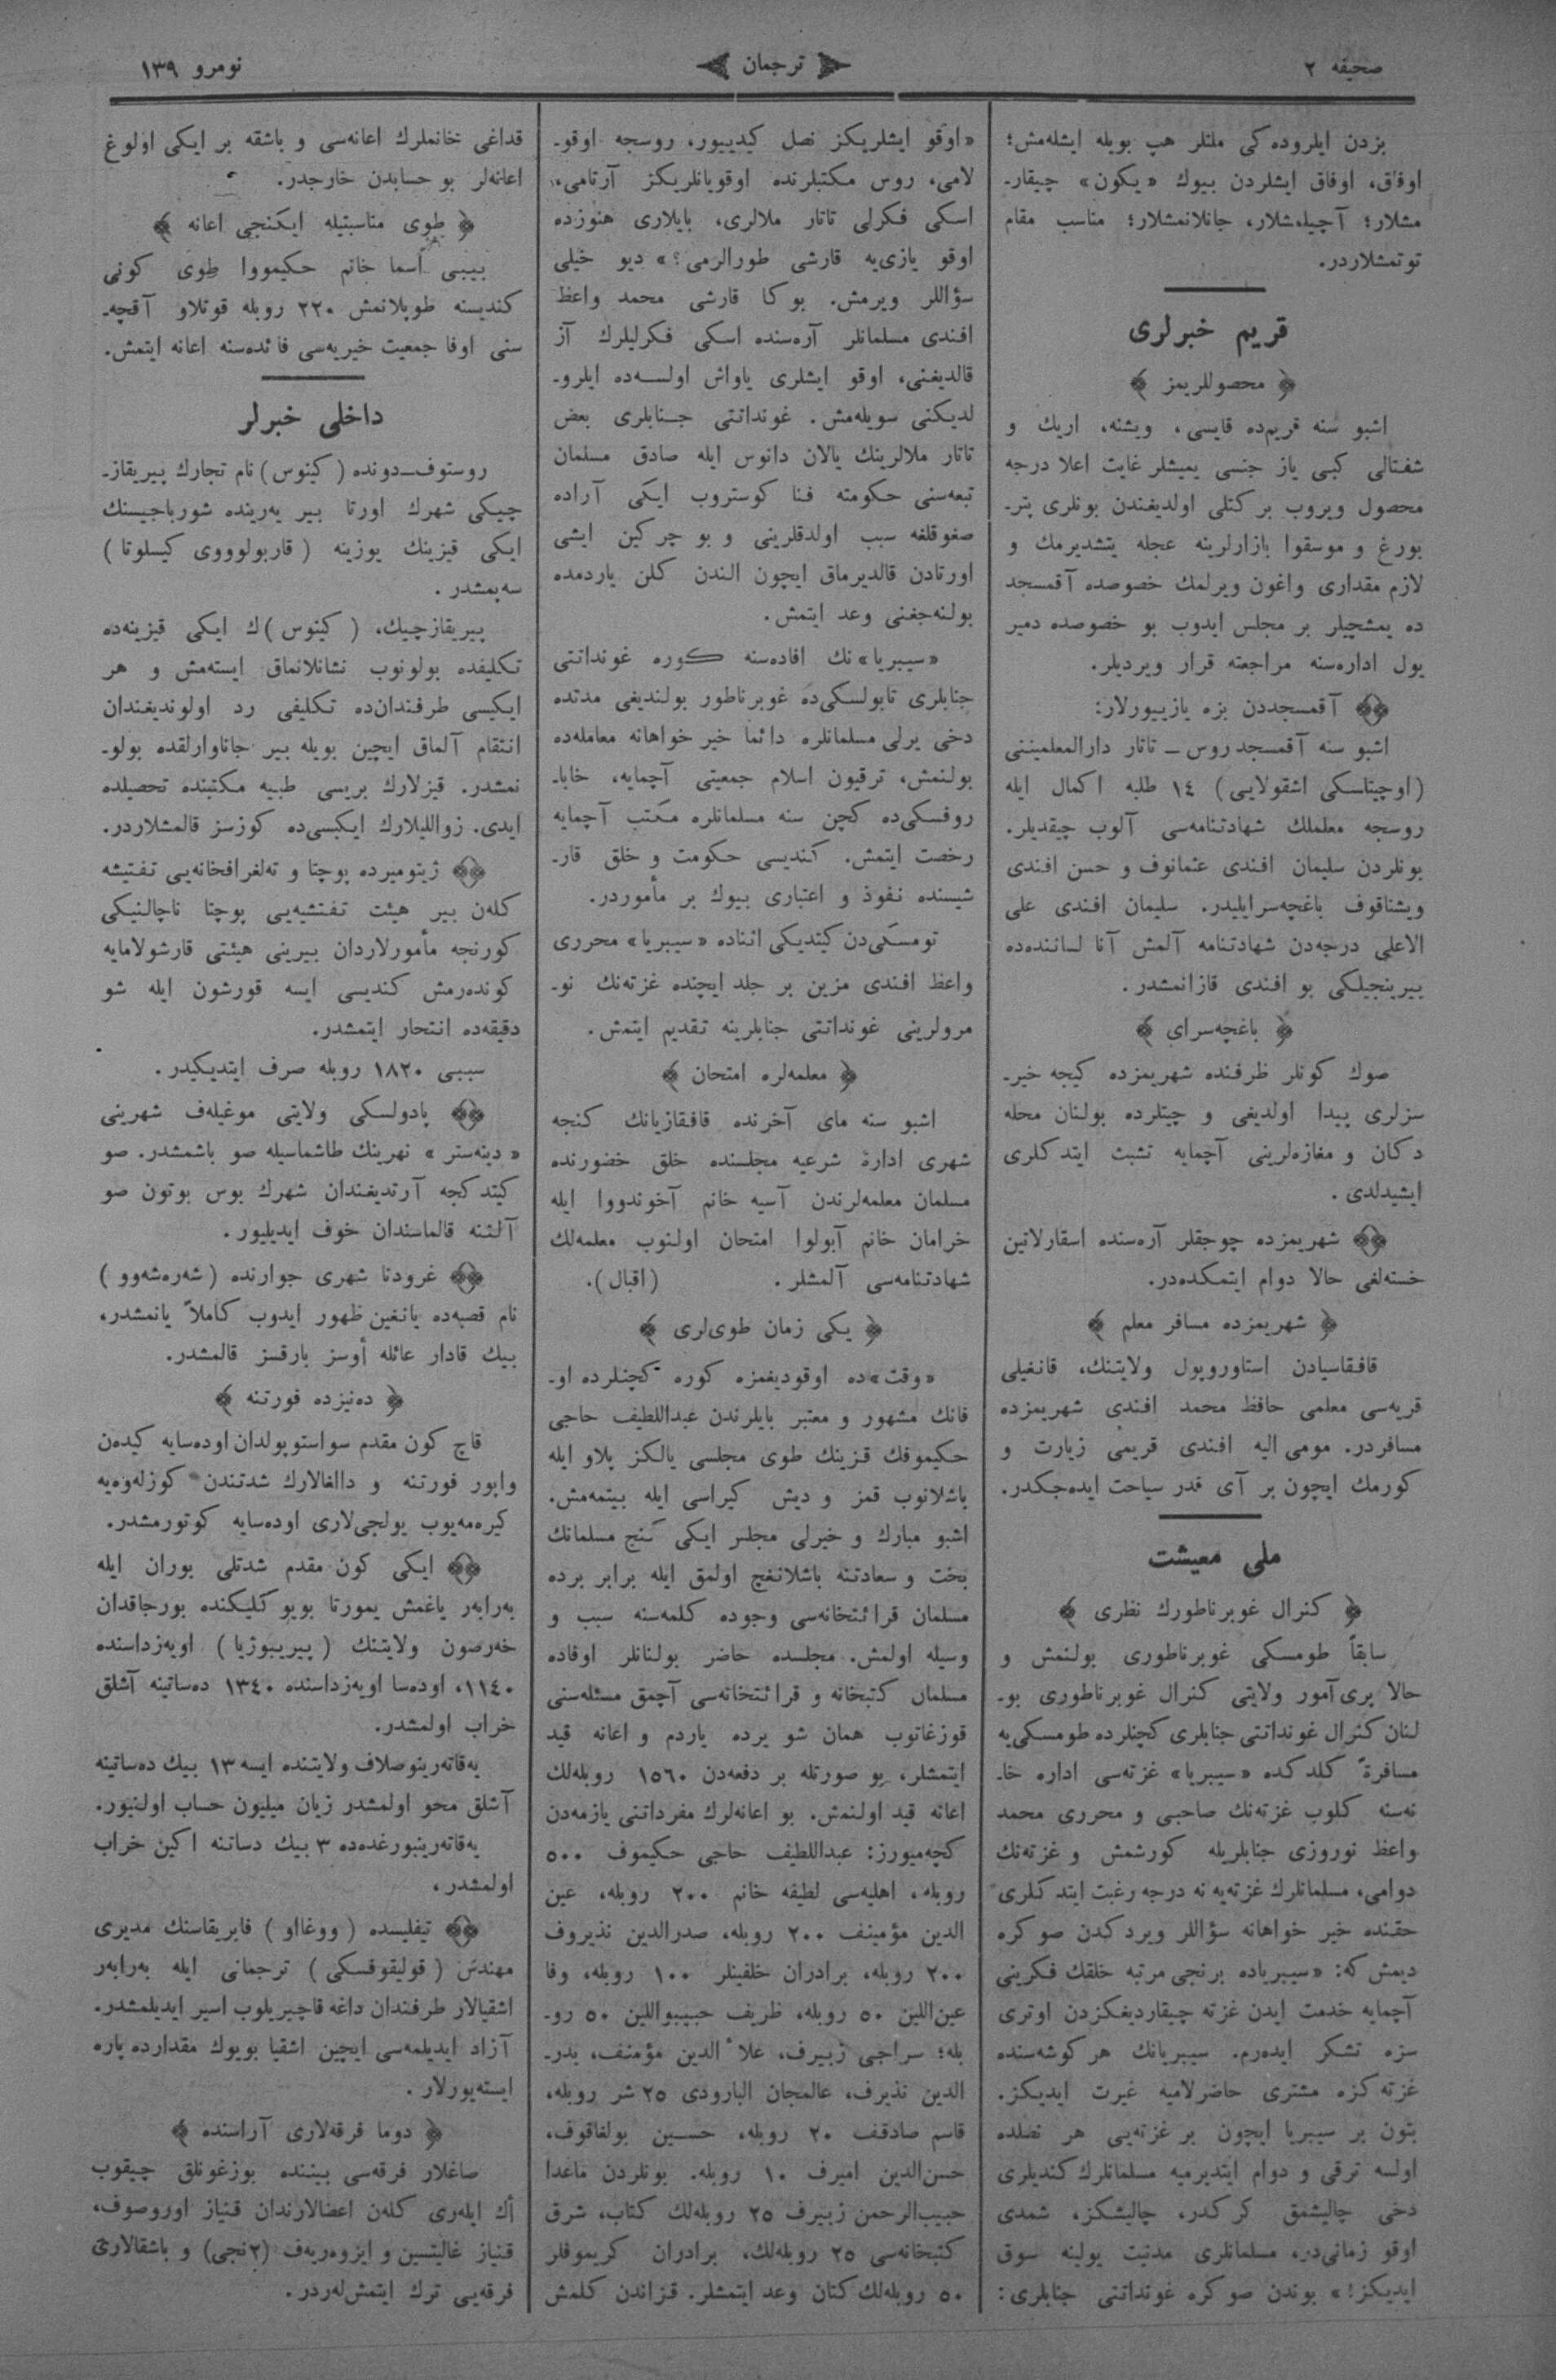 صحیفه ٢
ترجمان
نومرو ١٣٩
بزدن ایلروده‌کی ملتلر هپ بویله ایشله‌مش؛
اوفاق، اوفاق ایشلردن بیوك «یکون» چیقار-
مشلار؛ آچیلمشلار، جانلانمشلار؛ مناسب مقام
توتمشلاردر.
قریم خبرلری
﴿ محصوللریمز ﴾
اشبو سنه قریم‌ده قایسی، ویشنه، اریك و
شفتالی کبی یاز جنسی یمیشلر غایت اعلا درجه
محصول ویروب برکتلی اولدیغندن بونلری پتر-
بورغ و موسقوا بازارلرینه عجله یتشدیرمك و
لازم مقداری واغون ویرلمك خصوصده آقمسجد
ده یمشچیلر بر مجلس ایدوب بو خصوصده دمیر
یول اداره‌سنه مراجعته قرار ویردیلر.
آقمسجددن بزه یازییورلار:
اشبو سنه آقمسجد روس ـ تاتار دارالمعلمیننی
(اوچیتلسکی اشقولایی) ١٤ طلبه اکمال ایله
روسجه معلملك شهادتنامه‌سی آلوب چیقدیلر.
بونلردن سلیمان افندی عثمانوف و حسن افندی
ویشناقوف باغچه‌سرایلیدر. سلیمان افندی علی
الاعلی درجه‌دن شهادتنامه آلمش آنا لساننده‌ده
بیرینجیلکی بو افندی قازانمشدر.
﴿ باغچه‌سرای ﴾
صوك کونلر ظرفنده شهریمزده کیجه خیر-
سزلری پیدا اولدیغی و چیتلرده بولنان محله
دکان و مغازه‌لرینی آچمایه تشبث ایتدکلری
ایشیدلدی.
شهریمزده چوجقلر آره‌سنده اسقارلاتین
خسته‌لغی حالا دوام ایتمکده‌در.
﴿ شهریمزده مسافر معلم ﴾
قافقاسیادن استاوروپول ولایتنك، قانغیلی
قریه‌سی معلمی حافظ محمد افندی شهریمزده
مسافردر. مومی الیه افندی قریمی زیارت و
کورمك ایچون بر آی قدر سیاحت ایده‌جکدر.
ملی معیشت
﴿ کنرال غوبرناطورك نظری ﴾
سابقاً طومسکی غوبرناطوری بولنمش و
حالا پری‌آمور ولایتی کنرال غوبرناطوری بو-
لنان کنرال غونداتتی جنابلری کچنلرده طومسکی‌یه
مسافرةً کلدکده «سیبریا» غزته‌سی اداره خا-
نه‌سنه کلوب غزته‌نك صاحبی و محرری محمد
واعظ نوروزی جنابلریله کورشمش و غزته‌نك
دوامی، مسلمانلرك غزته‌یه نه درجه رغبت ایتدکلری
حقنده خیر خواهانه سؤاللر ویردکدن صوکره
دیمش که: «سیبریاده برنجی مرتبه خلقك فکرینی
آچمایه خدمت ایدن غزته چیقاردیغکزدن اوتری
سزه تشکر ایده‌رم. سیبریانك هر کوشه‌سنده
غزته‌کزه مشتری حاضرلامیه غیرت ایدیکز.
بتون بر سیبریا ایچون بر غزته‌یی هر نصلده
اولسه ترقی و دوام ایتدیرمیه مسلمانلرك کندیلری
دخی چالیشمق کرکدر، چالیشکز، شمدی
اوقو زمانی‌در، مسلمانلری مدنیت یولینه سوق
ایدیکز!» بوندن صوکره غونداتتی جنابلری:
«اوقو ایشلریکز نصل کیدییور، روسجه اوقو-
لامی، روس مکتبلرنده اوقویانلریکز آرتامی،
اسکی فکرلی تاتار ملالری، بایلاری هنوزده
اوقو یازی‌یه قارشی طورالرمی؟» دیو خیلی
سؤاللر ویرمش. بوکا قارشی محمد واعظ
افندی مسلمانلر آره‌سنده اسکی فکرلیلرك آز
قالدیغنی، اوقو ایشلری یاواش اولسه‌ده ایلرو-
لدیکنی سویله‌مش. غونداتتی جنابلری بعض
تاتار ملالرینك یالان دانوس ایله صادق مسلمان
تبعه‌سنی حکومته فنا کوستروب ایکی آراده
صغوقلغه سبب اولدقلرینی و بو چرکین ایشی
اورتادن قالدیرماق ایچون الندن کلن یاردمده
بولنه‌جغنی وعد ایتمش.
«سیبریا»نك افاده‌سنه کوره غونداتتی
جنابلری تابولسکی‌ده غوبرناطور بولندیغی مدتده
دخی یرلی مسلمانلره دائما خیر خواهانه معامله‌ده
بولنمش، ترقیون اسلام جمعیتی آچمایه، خابا-
روفسکی‌ده کچن سنه مسلمانلره مکتب آچمایه
رخصت ایتمش. کندیسی حکومت و خلق قار-
شیسنده نفوذ و اعتباری بیوك بر مأموردر.
تومسکی‌دن کیتدیکی اثناده «سیبریا» محرری
واعظ افندی مزین بر جلد ایچنده غزته‌نك نو-
مرولرینی غونداتتی جنابلرینه تقدیم ایتمش.
﴿ معلمه‌لره امتحان ﴾
اشبو سنه مای آخرنده قافقازیانك کنجه
شهری ادارهٔ شرعیه مجلسنده خلق حضورنده
مسلمان معلمه‌لرندن آسیه خانم آخوندووا ایله
خرامان خانم آبولوا امتحان اولنوب معلمه‌لك
شهادتنامه‌سی آلمشلر. (اقبال).
﴿ یکی زمان طوی‌لری ﴾
«وقت»ده اوقودیغمزه کوره کچنلرده او-
فانك مشهور و معتبر بایلرندن عبداللطیف حاجی
حکیموفك قزینك طوی مجلسی یالکز پلاو ایله
باشلانوب قمز و دیش کیراسی ایله بیتمه‌مش.
اشبو مبارك و خیرلی مجلس ایکی کنج مسلمانك
بخت و سعادتنه باشلانغچ اولمق ایله برابر برده
مسلمان قرائتخانه‌سی وجوده کلمه‌سنه سبب و
وسیله اولمش. مجلسده حاضر بولنانلر اوفاده
مسلمان کتبخانه و قرائتخانه‌سی آچمق مسئله‌سنی
قوزغاتوب همان شو یرده یاردم و اعانه قید
ایتمشلر، بو صورتله بر دفعه‌دن ١٥٦٠ روبله‌لك
اعانه قید اولنمش. بو اعانه‌لرك مفرداتنی یازمه‌دن
کچه‌میورز: عبداللطیف حاجی حکیموف ٥٠٠
روبله، اهلیه‌سی لطیفه خانم ٢٠٠ روبله، عین
الدین مؤمینف ٢٠٠ روبله، صدرالدین نذیروف
٢٠٠ روبله، برادران خلفینلر ١٠٠ روبله، وفا
عین‌اللین ٥٠ روبله، ظریف حبیبواللین ٥٠ رو-
بله؛ سراجی زبیرف، علاءالدین مؤمنف، بدر-
الدین نذیرف، عالمجان البارودی ٢٥ شر روبله،
قاسم صادقف ٢٠ روبله، حسین بولغاقوف،
حسن‌الدین امیرف ١٠ روبله. بونلردن ماعدا
حبیب‌الرحمن زبیرف ٢٥ روبله‌لك کتاب، شرق
کتبخانه‌سی ٢٥ روبله‌لك، برادران کریموفلر
٥٠ روبله‌لك کتاب وعد ایتمشلر. قزاندن کلمش
قداغی خانملرك اعانه‌سی و باشقه بر ایکی اولوغ
اعانه‌لر بو حسابدن خارجدر.
﴿ طوی مناسبتیله ایکنجی اعانه ﴾
بیبی اسما خانم حکیمووا طوی کونی
کندیسنه طوپلانمش ٢٢٠ روبله قوتلاو آقچه-
سنی اوفا جمعیت خیریه‌سی فائده‌سنه اعانه ایتمش.
داخلی خبرلر
روستوف-دونده (کینوس) نام تجارك پیریقاز-
چیکی شهرك اورتا بیر یه‌رینده شورباجیسنك
ایکی قیزینك یوزینه (قاربولوووی کیسلوتا)
سه‌پمشدر.
پیریقازچیك، (کینوس)ك ایکی قیزینه‌ده
تکلیفده بولونوب نشانلانماق ایسته‌مش و هر
ایکیسی طرفندان‌ده تکلیفی رد اولوندیغندان
انتقام آلماق ایچین بویله بیر جاناوارلقده بولو-
نمشدر. قیزلارك بریسی طبیه مکتبنده تحصیلده
ایدی. زواللیلارك ایکیسی‌ده کوزسز قالمشلاردر.
ژیتومیرده پوچتا و ته‌لغرافخانه‌یی تفتیشه
کله‌ن بیر هیئت تفتشیه‌یی پوچتا ناچالنیکی
کورنجه مأمورلاردان بیرینی هیئتی قارشولامایه
کونده‌رمش کندیسی ایسه قورشون ایله شو
دقیقه‌ده انتحار ایتمشدر.
سببی ١٨٢٠ روبله صرف ایتدیکیدر.
پادولسکی ولایتی موغیله‌ف شهرینی
«دینه‌ستر» نهرینك طاشماسیله صو باشمشدر. صو
کیتدکجه آرتدیغندان شهرك بوس بوتون صو
آلتنه قالماسندان خوف ایدیلیور.
غرودنا شهری جوارنده (شه‌ره‌شه‌وو)
نام قصبه‌ده یانغین ظهور ایدوب کاملاً یانمشدر،
بیك قادار عائله أوسز بارقسز قالمشدر.
﴿ ده‌نیزده فورتنه ﴾
قاچ کون مقدم سواستوپولدان اوده‌سایه کیده‌ن
واپور فورتنه و دالغالارك شدتندن کوزله‌وه‌یه
کیره‌مه‌یوب یولجی‌لاری اوده‌سایه کوتورمشدر.
ایکی کون مقدم شدتلی بوران ایله
به‌رابه‌ر یاغمش یمورتا بویوکلیکنده بورجاقدان
خه‌رصون ولایتنك (پیریبوژیا) اویه‌زداسنده
١١٤٠، اوده‌سا اویه‌زداسنده ١٣٤٠ ده‌ساتینه آشلق
خراب اولمشدر.
یه‌قاته‌رینوصلاف ولایتنده ایسه ١٣ بیك ده‌ساتینه
آشلق محو اولمشدر زیان میلیون حساب اولنیور.
یه‌قاته‌رینبورغده‌ده ٣ بیك دساتنه اکین خراب
اولمشدر،
تیفلیسده (ووغااو) فابریقاسنك مدیری
مهندس (قولیقوفسکی) ترجمانی ایله به‌رابه‌ر
اشقیالار طرفندان داغه قاچیریلوب اسیر ایدیلمشدر.
آزاد ایدیلمه‌سی ایچین اشقیا بویوك مقدارده پاره
ایسته‌یورلار.
﴿ دوما فرقه‌لاری آراسنده ﴾
صاغلار فرقه‌سی بیننده بوزغونلق چیقوب
أك ایله‌ری کله‌ن اعضالارندان قنیاز اوروصوف،
قنیاز غالیتسین و ایزوه‌ریه‌ف (٢نجی) و باشقالاری
فرقه‌یی ترك ایتمش‌له‌ردر.